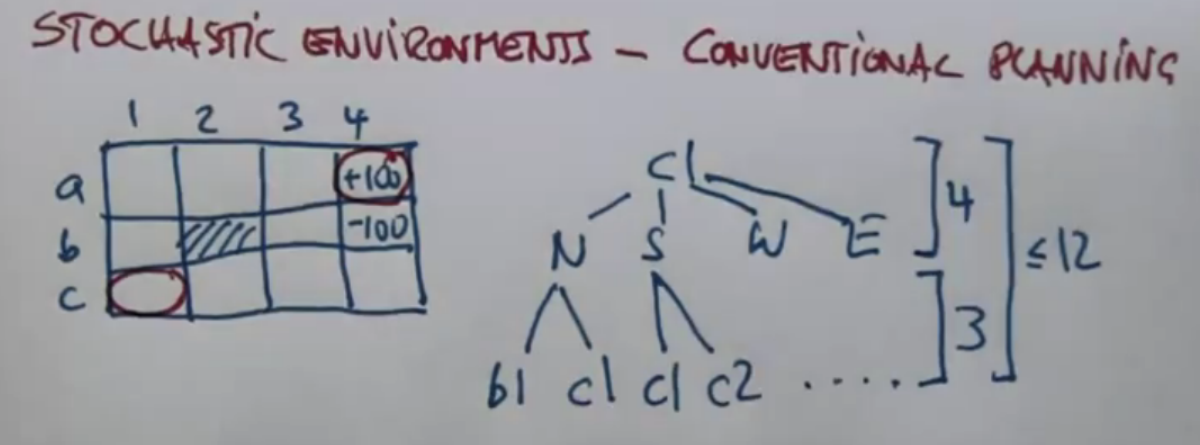 STOCHASTIC ENVIRONMENTS - CONVENTIONAL PLANNING
1 2 3 4
a +100
b -100
c
C1
N S W E
b1 c1 c1 c2 .....
] 4
] 3
] ≤12